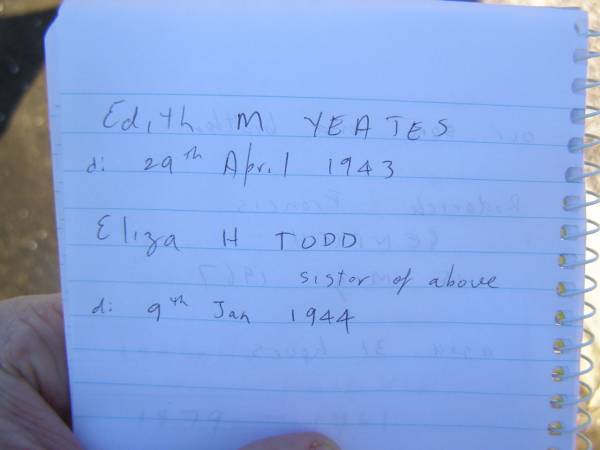 Edith M YEATES
d: 29th April 1943
Eliza H TODD
sister of above
d: 9th Jan 1944